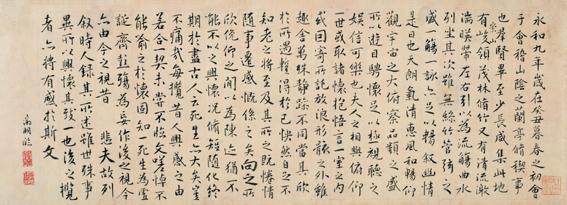 永和九年歲在癸丑暮春之初會
于會稽山陰之蘭亭脩禊事
也羣賢畢至少長咸集此地
有崇山峻領茂林脩竹又有清流激
湍暎帶左右引以為流觴曲水
列坐其次雖無絲竹管弦之
盛一觴一詠亦足以暢敘幽情
是日也天朗氣清惠風和暢仰
觀宇宙之大俯察品類之盛
所以遊目騁懷足以極視聽之
娛信可樂也夫人之相與俯仰
一世或取諸懷抱悟言一室之內
或因寄所託放浪形骸之外雖
趣舍萬殊靜躁不同當其欣
於所遇暫得於己快然自足不
知老之將至及其所之既惓情
隨事遷感慨係之矣向之所
欣俛仰之間以為陳迹猶不
能不以之興懷況脩短隨化終
期於盡古人云死生亦大矣豈
不痛哉每攬昔人興感之由
若合一契未嘗不臨文嗟悼不
能喻之於懷固知一死生為虛
誕齊彭殤為妄作後之視今
亦由今之視昔 悲夫故列
敘時人錄其所述雖世殊事
異所以興懷其致一也後之攬
者亦將有感於斯文
明臨